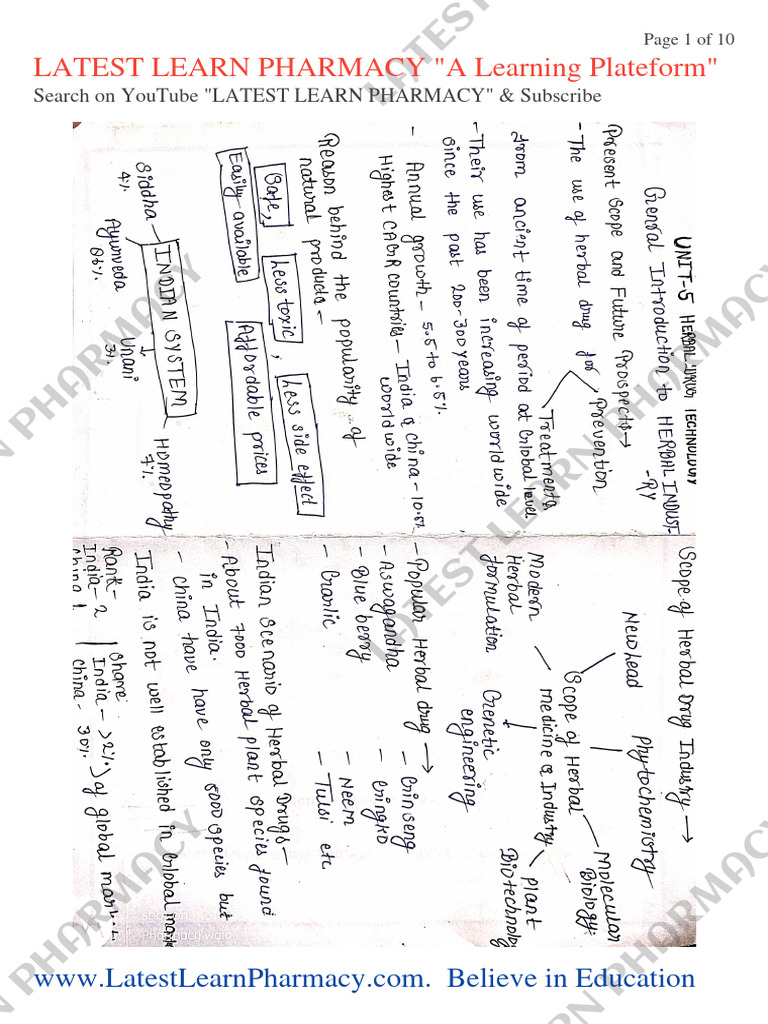 Page 1 of 10
LATEST LEARN PHARMACY "A Learning Plateform"
Search on YouTube "LATEST LEARN PHARMACY" & Subscribe
UNIT-5 HERBAL DRUG TECHNOLOGY
General Introduction to HERBAL INDUST-
-RY
Present Scope and Future Prospects→
- The use of herbal drug for
Prevention
Treatments
from ancient time of period at Global level.
- Their use has been increasing worldwide
since the past 200-300 years
- Annual growth - 5.5 to 6.5%
Highest CAGR countries - India & China - 10.5%
worldwide
Reason behind the popularity of
natural products -
Safe,
Less toxic,
Less side effect
Easily available
Affordable prices
INDIAN SYSTEM
Siddha
4%
Ayurveda
86%
Unani
3%
Homeopathy
7%
Scope of Herbal Drug Industry →
New head
Phytochemistry
Molecular
Biology
Scope of Herbal
medicine & Industry
Modern
Herbal
formulation
Genetic
engineering
Plant
Biotechnology
- Popular Herbal drug →
- Ginseng
- Aswagandha
- Gingko
- Blue berry
- Neem
- Garlic
- Tulsi etc
Indian Scenario of Herbal Drugs -
- About 7000 Herbal plant species found
in India.
- China have have only 5000 species but
India is not well established in Global
Rank-
India - 2
China 1
Share:
India -> 2%
China - 30%
of global
LATEST LEARN PHARMACY
www.LatestLearnPharmacy.com. Believe in Education